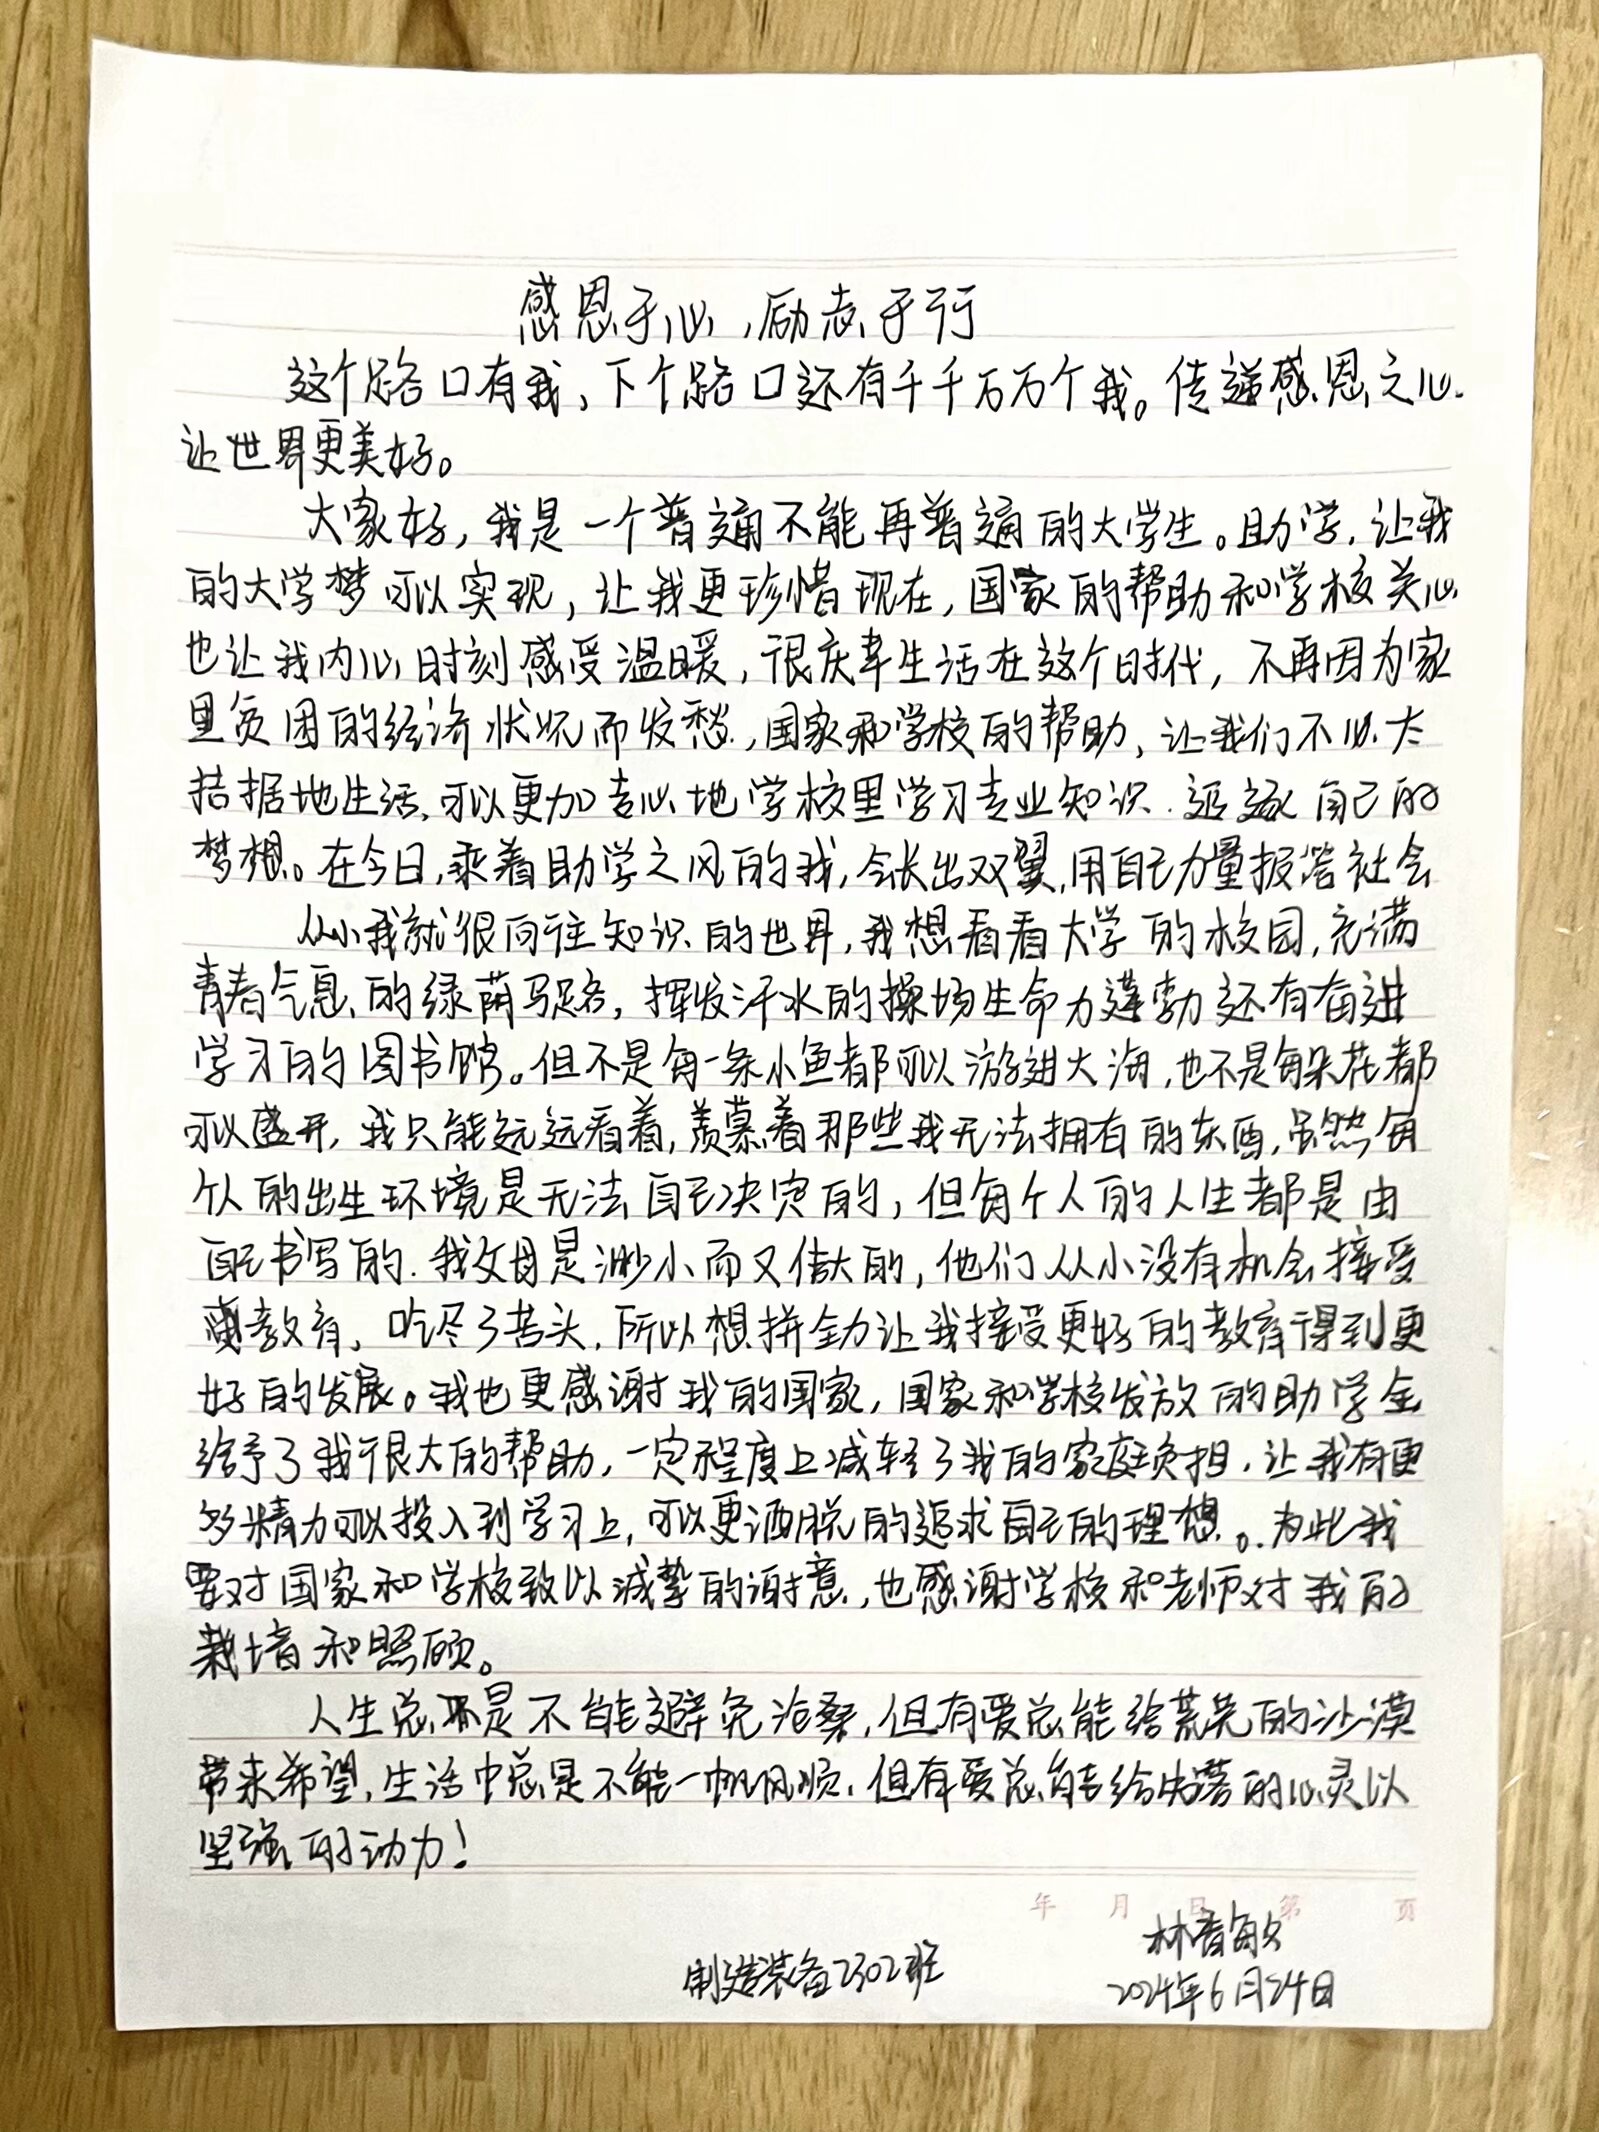 感恩于心,励志于行
这个路口有我、下个路口还有千千万万个我。传递感恩之心.
让世界更美好。
大家好,我是一个普通不能再普通的大学生。助学,让我
的大学梦可以实现,让我更珍惜现在,国家的帮助和学校关心
也让我内心时刻感受温暖,很庆幸生活在这个时代,不再因为家
里贫困的经济状况而发愁,国家和学校的帮助,让我们不必太
拮据地生活,可以更加专心地学校里学习专业知识.追逐自己的
梦想。在今日,乘着助学之风的我,会长出双翼,用自己力量报答社会
从小我就很向往知识的世界,我想看看大学的校园,充满
青春气息的绿荫马路,挥发汗水的操场生命力蓬勃还有奋进
学习的图书馆。但不是每一条小鱼都可以游进大海,也不是每朵花都
可以盛开,我只能远远看着,羡慕着那些我无法拥有的东西,虽然每
个人的出生环境是无法自己决定的,但每个人的人生都是由
自己书写的.我父母是渺小而又伟大的,他们从小没有机会接受
教育,吃尽了苦头,所以想拼全力让我接受更好的教育得到更
好的发展。我也更感谢我的国家,国家和学校发放的助学金
给予了我很大的帮助,一定程度上减轻了我的家庭负担,让我有更
多精力可以投入到学习上,可以更洒脱的追求自己的理想。为此我
要对国家和学校致以诚挚的谢意,也感谢学校和老师对我的
栽培和照顾。
人生总是不能避免沧桑,但有爱总能给荒芜的沙漠
带来希望,生活中总是不能一帆风顺,但有爱总能给失落的心灵以
坚强的动力!
年 月 日 第 页
林香敏
制造装备2302班
2024年6月24日